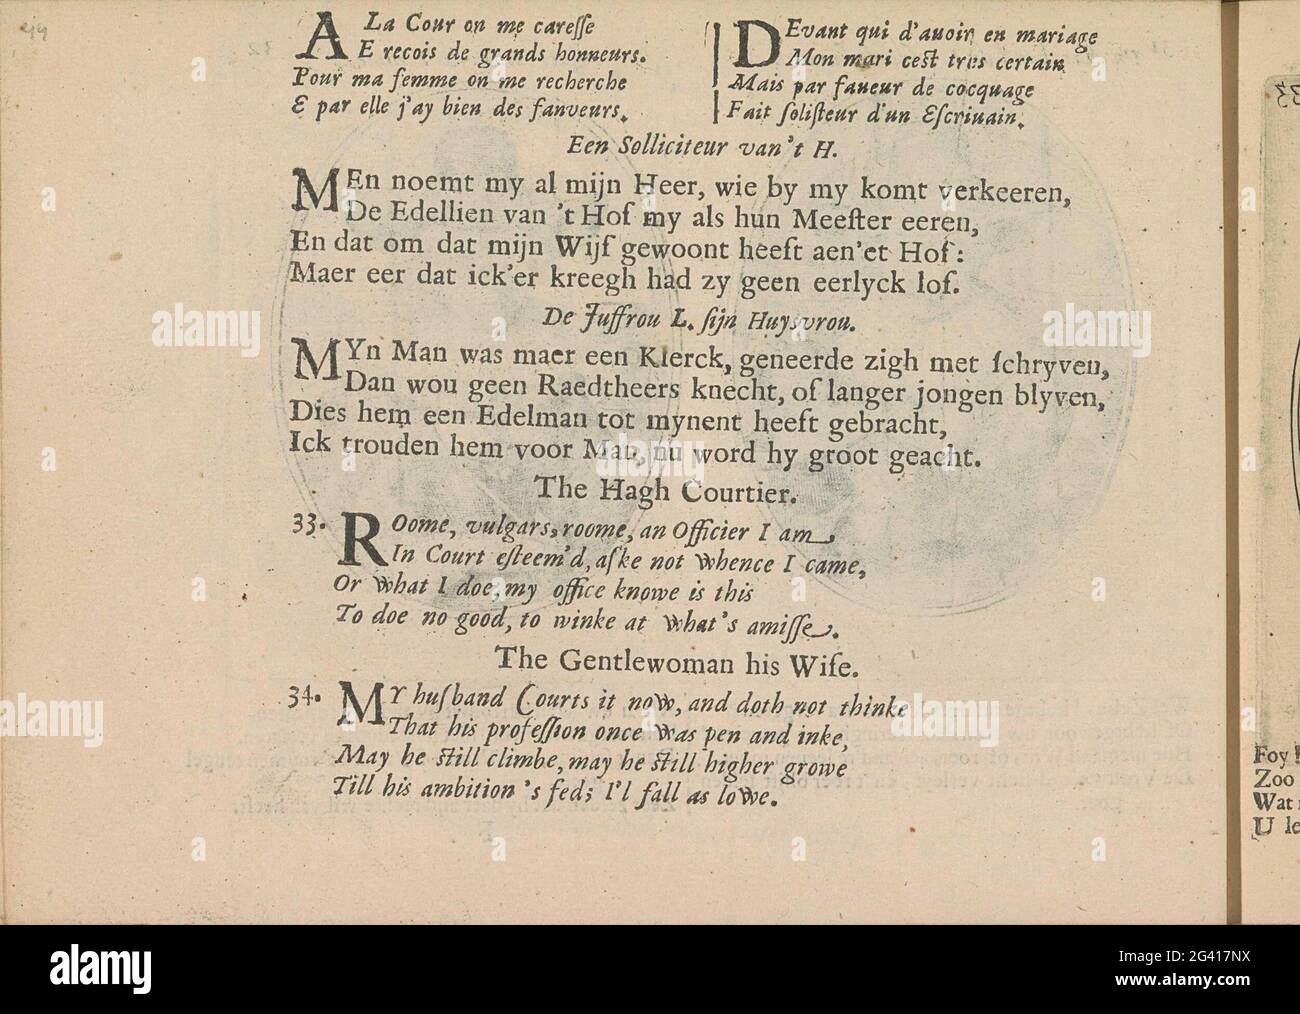 44
A La Cour on me caresse
E recois de grands honneurs.
Pour ma femme on me recherche
E par elle j'ay bien des fanveurs.
DEvant qui d'auoir en mariage
Mon mari cest tres certain
Mais par faueur de cocquage
Fait soliſteur d'un Eſcriuain.
Een Solliciteur van't H.
MEn noemt my al mijn Heer, wie by my komt verkeeren,
De Edellien van 't Hof my als hun Meeſter eeren,
En dat om dat mijn Wijf gewoont heeft aen'et Hof:
Maer eer dat ick'er kreegh had zy geen eerlyck lof.
De Juffrou L. ſijn Huysvrou.
MYn Man was maer een Klerck, geneerde zigh met ſchryven,
Dan wou geen Raedtheers knecht, of langer jongen blyven,
Dies hem een Edelman tot mynent heeft gebracht,
Ick trouden hem voor Man, nu word hy groot geacht.
The Hagh Courtier.
33. ROome, vulgars, roome, an Officier I am,
In Court eſteem'd, aſke not whence I came,
Or what I doe, my office knowe is this
To doe no good, to winke at what's amiſſe.
The Gentlewoman his Wife.
34. MY huſband Courts it now, and doth not thinke
That his profeſſion once was pen and inke,
May he ſtill climbe, may he ſtill higher growe
Till his ambition 's fed; I'l fall as lowe.
33
Foy
Zoo
Wat
U le
alamy
Image ID: 2G417NX
www.alamy.com